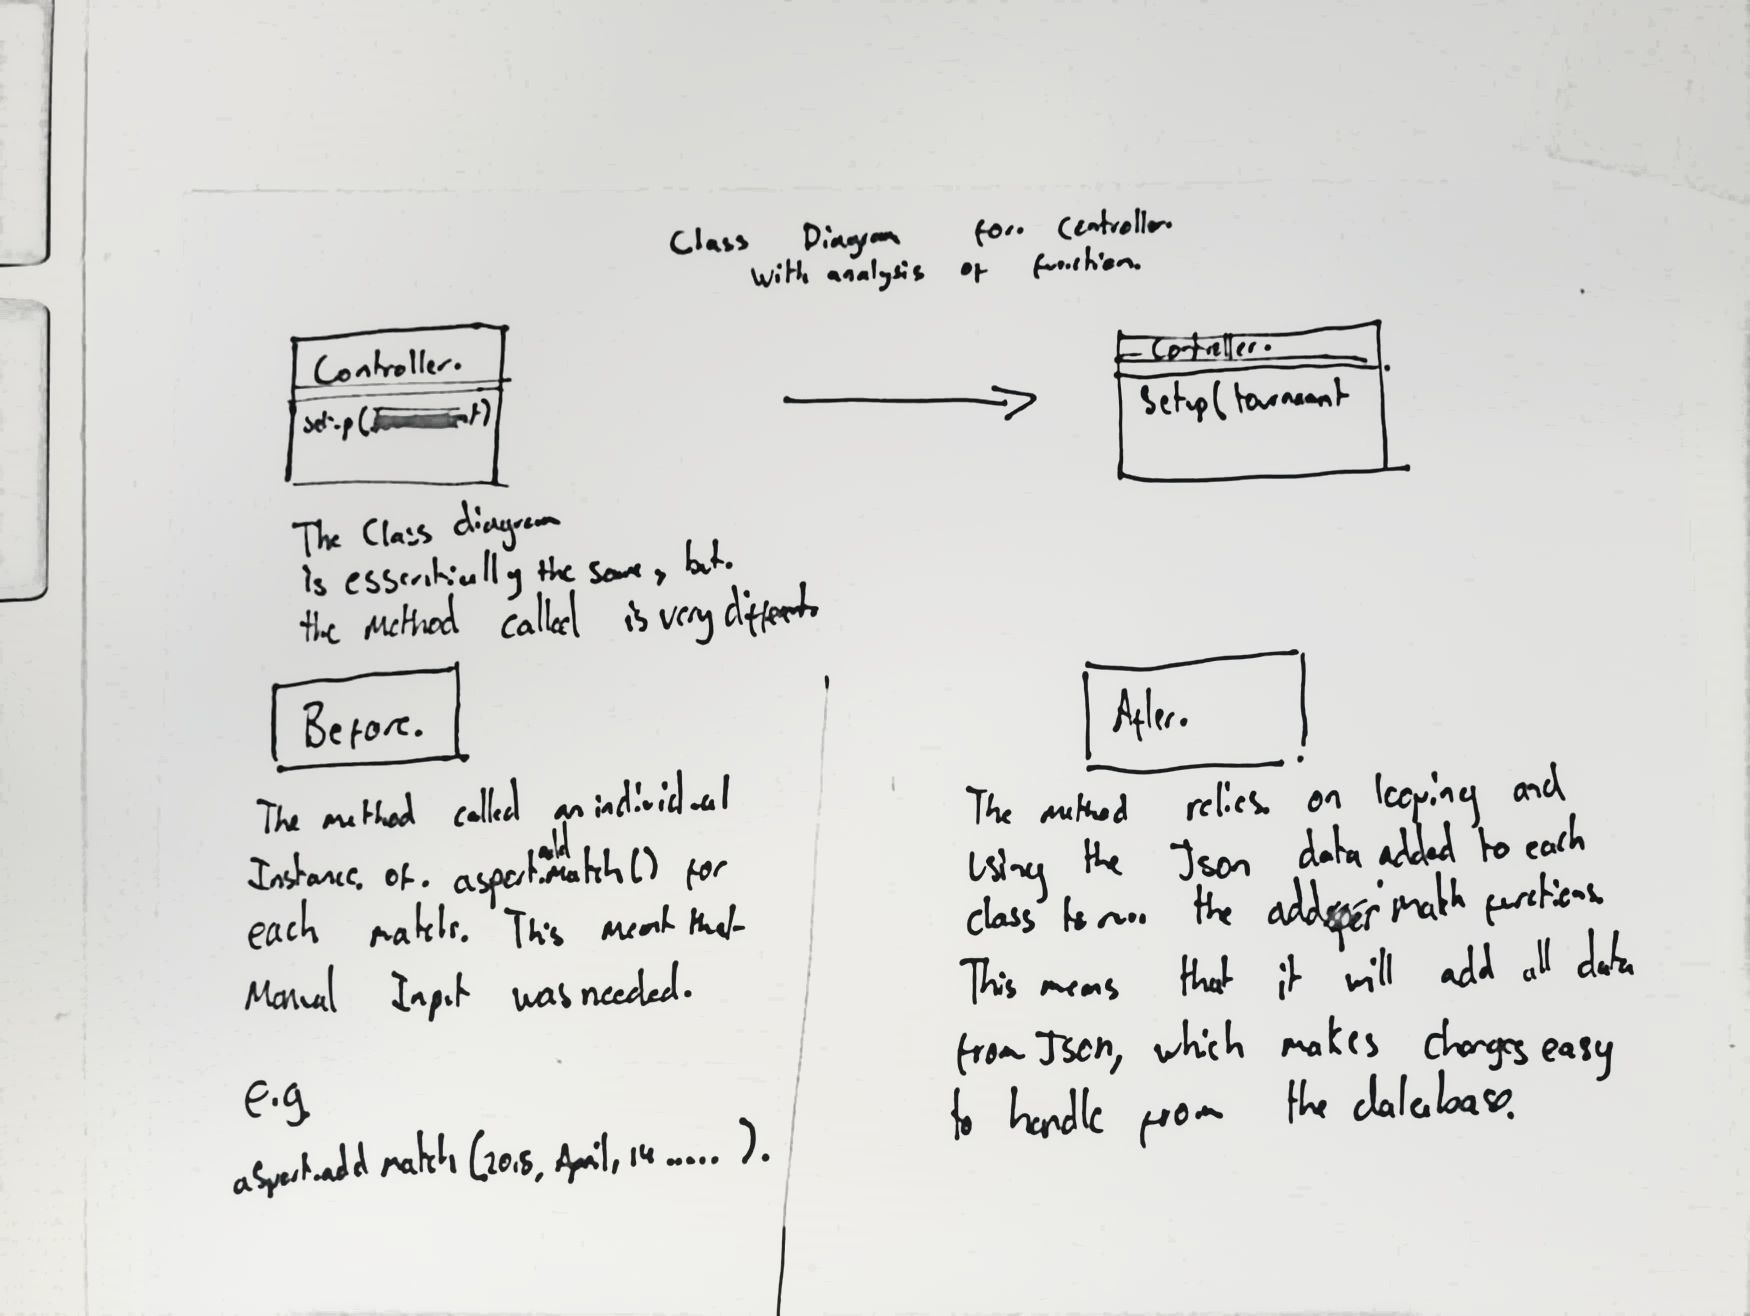 Class Diagram for Controller
with analysis of function.
Controller.
setup(
Controller.
Setup(tournamant
The Class diagram
is essentially the same, but.
the method called is very different
Before.
After.
The method called an individual
Instance. of. asport.add match() for
each match. This meant that
Manual Input was needed.
e.g
asport.add match (2015, April, 14 ..... ).
The method relies on looping and
using the Json data added to each
class to run the add match functions.
This means that it will add all data
from Json, which makes changes easy
to handle from the database.